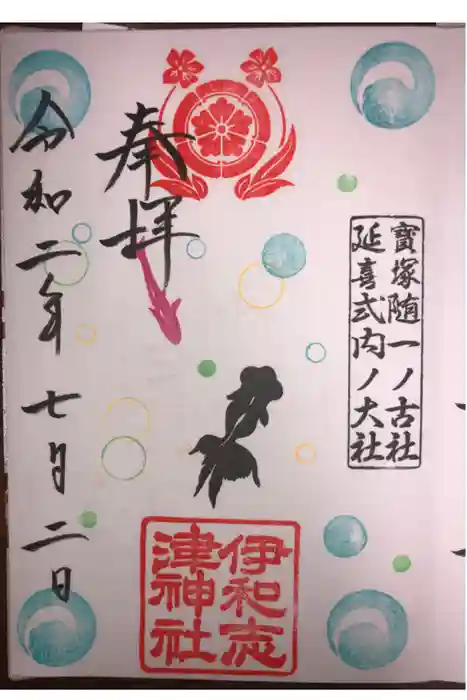 寶塚随一ノ古社
延喜式内ノ大社
奉拝
伊和志
津神社
令和二年七月二日